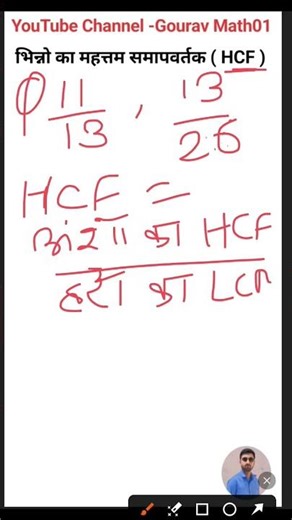 YouTube Channel -Gourav Math01
भिन्नो का महत्तम समापवर्तक ( HCF )
Q 11/13 , 13/26
HCF =
अंशो का HCF
हरो का LCM